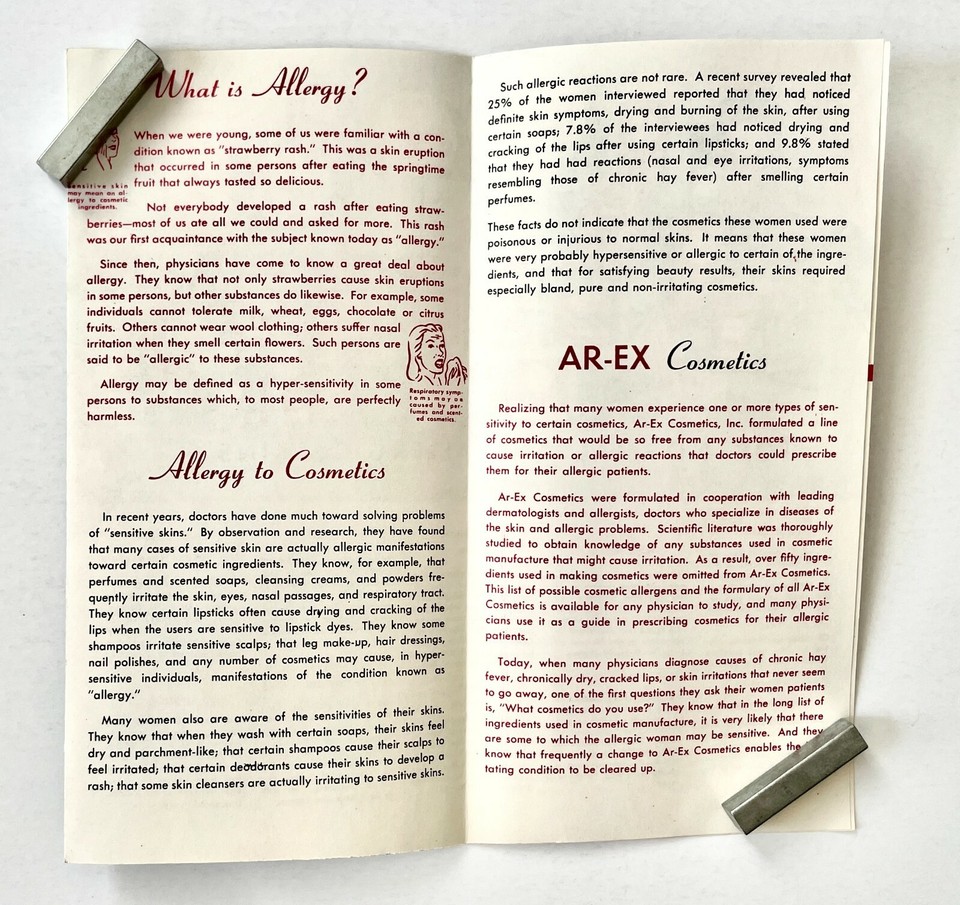 What is Allergy?
When we were young, some of us were familiar with a con-
dition known as "strawberry rash." This was a skin eruption
that occurred in some persons after eating the springtime
fruit that always tasted so delicious.
Sensitive skin
may mean an al-
lergy to cosmetic
ingredients.
Not everybody developed a rash after eating straw-
berries—most of us ate all we could and asked for more. This rash
was our first acquaintance with the subject known today as "allergy."
Since then, physicians have come to know a great deal about
allergy. They know that not only strawberries cause skin eruptions
in some persons, but other substances do likewise. For example, some
individuals cannot tolerate milk, wheat, eggs, chocolate or citrus
fruits. Others cannot wear wool clothing; others suffer nasal
irritation when they smell certain flowers. Such persons are
said to be "allergic" to these substances.
Allergy may be defined as a hyper-sensitivity in some
persons to substances which, to most people, are perfectly
harmless.
Respiratory symp-
toms may be
caused by per-
fumes and scent-
ed cosmetics.
Allergy to Cosmetics
In recent years, doctors have done much toward solving problems
of "sensitive skins." By observation and research, they have found
that many cases of sensitive skin are actually allergic manifestations
toward certain cosmetic ingredients. They know, for example, that
perfumes and scented soaps, cleansing creams, and powders fre-
quently irritate the skin, eyes, nasal passages, and respiratory tract.
They know certain lipsticks often cause drying and cracking of the
lips when the users are sensitive to lipstick dyes. They know some
shampoos irritate sensitive scalps; that leg make-up, hair dressings,
nail polishes, and any number of cosmetics may cause, in hyper-
sensitive individuals, manifestations of the condition known as
"allergy."
Many women also are aware of the sensitivities of their skins.
They know that when they wash with certain soaps, their skins feel
dry and parchment-like; that certain shampoos cause their scalps to
feel irritated; that certain deodorants cause their skins to develop a
rash; that some skin cleansers are actually irritating to sensitive skins.
Such allergic reactions are not rare. A recent survey revealed that
25% of the women interviewed reported that they had noticed
definite skin symptoms, drying and burning of the skin, after using
certain soaps; 7.8% of the interviewees had noticed drying and
cracking of the lips after using certain lipsticks; and 9.8% stated
that they had had reactions (nasal and eye irritations, symptoms
resembling those of chronic hay fever) after smelling certain
perfumes.
These facts do not indicate that the cosmetics these women used were
poisonous or injurious to normal skins. It means that these women
were very probably hypersensitive or allergic to certain of the ingre-
dients, and that for satisfying beauty results, their skins required
especially bland, pure and non-irritating cosmetics.
AR-EX Cosmetics
Realizing that many women experience one or more types of sen-
sitivity to certain cosmetics, Ar-Ex Cosmetics, Inc. formulated a line
of cosmetics that would be so free from any substances known to
cause irritation or allergic reactions that doctors could prescribe
them for their allergic patients.
Ar-Ex Cosmetics were formulated in cooperation with leading
dermatologists and allergists, doctors who specialize in diseases of
the skin and allergic problems. Scientific literature was thoroughly
studied to obtain knowledge of any substances used in cosmetic
manufacture that might cause irritation. As a result, over fifty ingre-
dients used in making cosmetics were omitted from Ar-Ex Cosmetics.
This list of possible cosmetic allergens and the formulary of all Ar-Ex
Cosmetics is available for any physician to study, and many physi-
cians use it as a guide in prescribing cosmetics for their allergic
patients.
Today, when many physicians diagnose causes of chronic hay
fever, chronically dry, cracked lips, or skin irritations that never seem
to go away, one of the first questions they ask their women patients
is, "What cosmetics do you use?" They know that in the long list of
ingredients used in cosmetic manufacture, it is very likely that there
are some to which the allergic woman may be sensitive. And they
know that frequently a change to Ar-Ex Cosmetics enables the
tating condition to be cleared up.